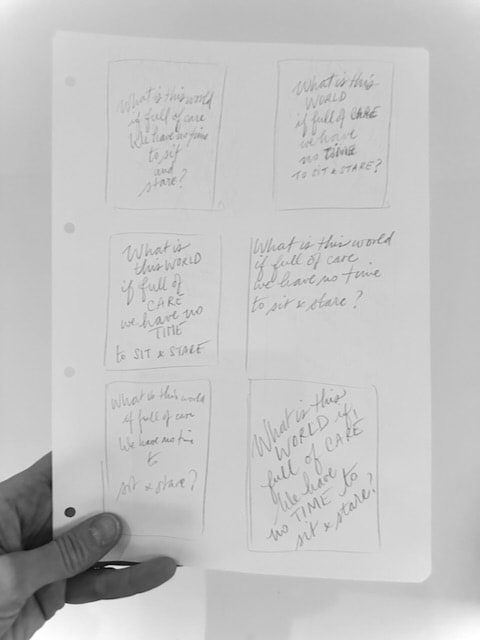 What is this world
if full of care
We have no time
to sit
and
stare?
What is this
WORLD
if full of CARE
we have
no TIME
TO SIT & STARE?
What is
this WORLD
if full of
CARE
we have no
TIME
to SIT & STARE
What is this world
if full of care
we have no time
to sit & stare?
What is this world
if full of care
We have no time
to
sit & stare?
What is this
WORLD if,
full of CARE
We have
no TIME to
sit & stare?